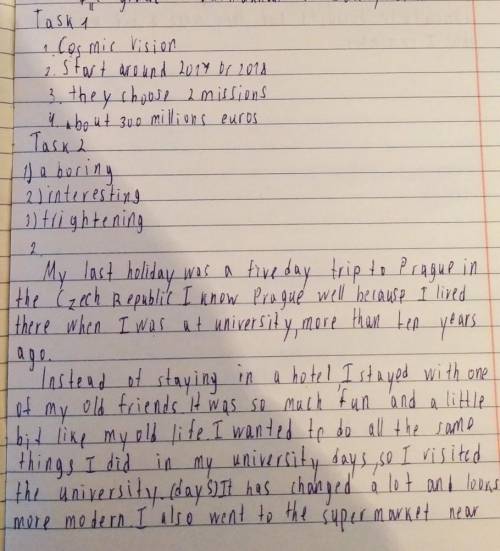 Task 1
1. Cosmic vision
2. Start around 2017 or 2018
3. they choose 2 missions
4. about 300 millions euros
Task 2
1) a boring
2) interesting
3) frightening
2.
My last holiday was a five day trip to Prague in
the Czech Republic I know Prague well because I lived
there when I was at university, more than ten years
ago.
Instead of staying in a hotel, I stayed with one
of my old friends It was so much fun and a little
bit like my old life. I wanted to do all the same
things I did in my university days, so I visited
the university. (days) It has changed a lot and looks
more modern. I also went to the supermarket near